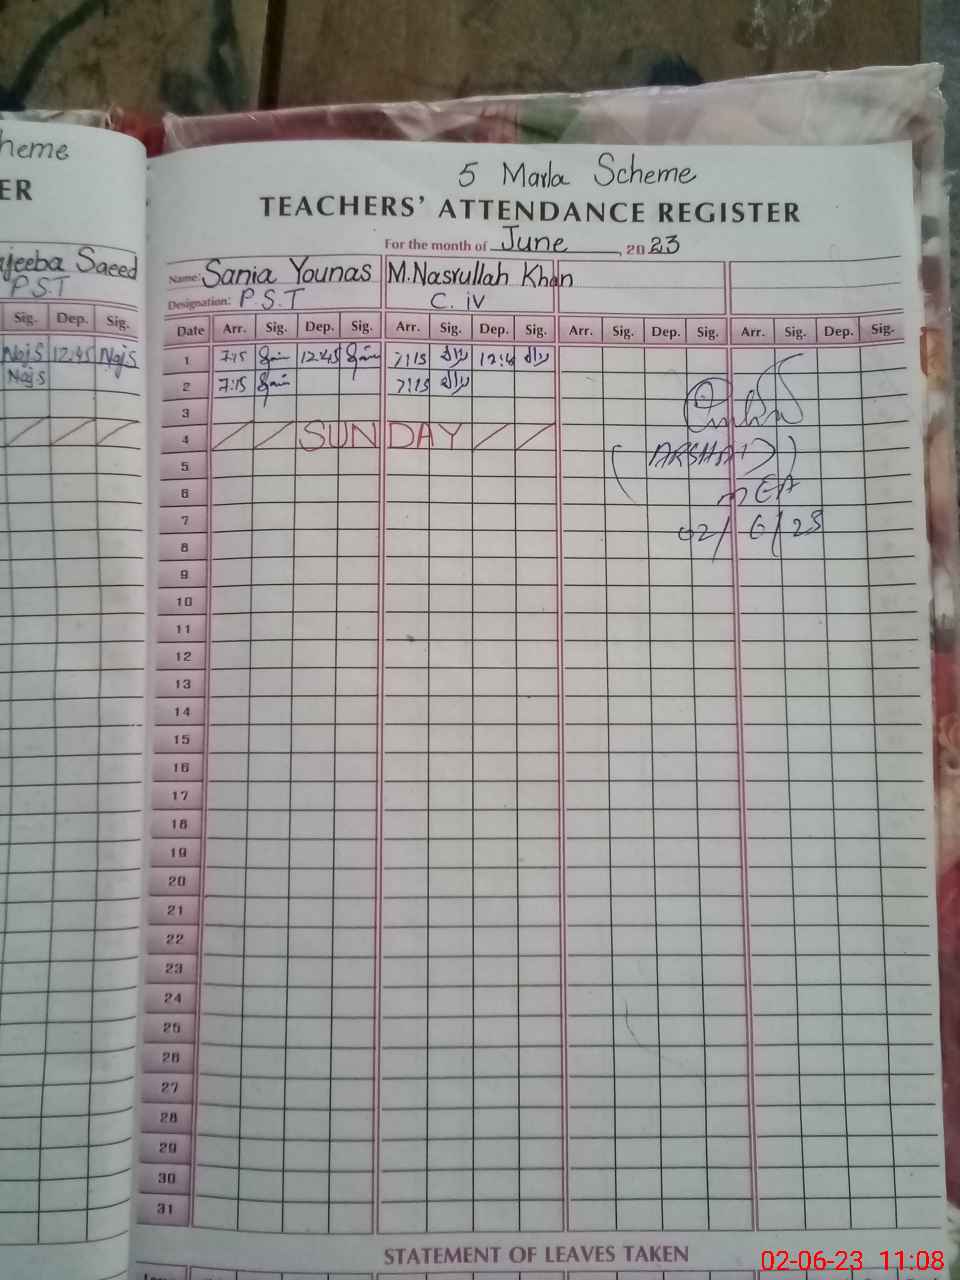 heme
ER
jeeba Saeed
P.S.T
Sig. Dep. Sig.
NajS 12:45 NajS
NajS
5 Marla Scheme
TEACHERS' ATTENDANCE REGISTER
For the month of June, 2023
Name: Sania Younas M.Nasrullah Khan
Designation: P.S.T C.iV
Date Arr. Sig. Dep. Sig. Arr. Sig. Dep. Sig. Arr. Sig. Dep. Sig. Arr. Sig. Dep. Sig.
1 7:15 12:45 7:15 12:4
2 7:15 7:15
3
4 SUNDAY
5 (ARSHAD)
6 MEA
7 02/6/23
8
9
10
11
12
13
14
15
16
17
18
19
20
21
22
23
24
25
26
27
28
29
30
31
STATEMENT OF LEAVES TAKEN
02-06-23 11:08